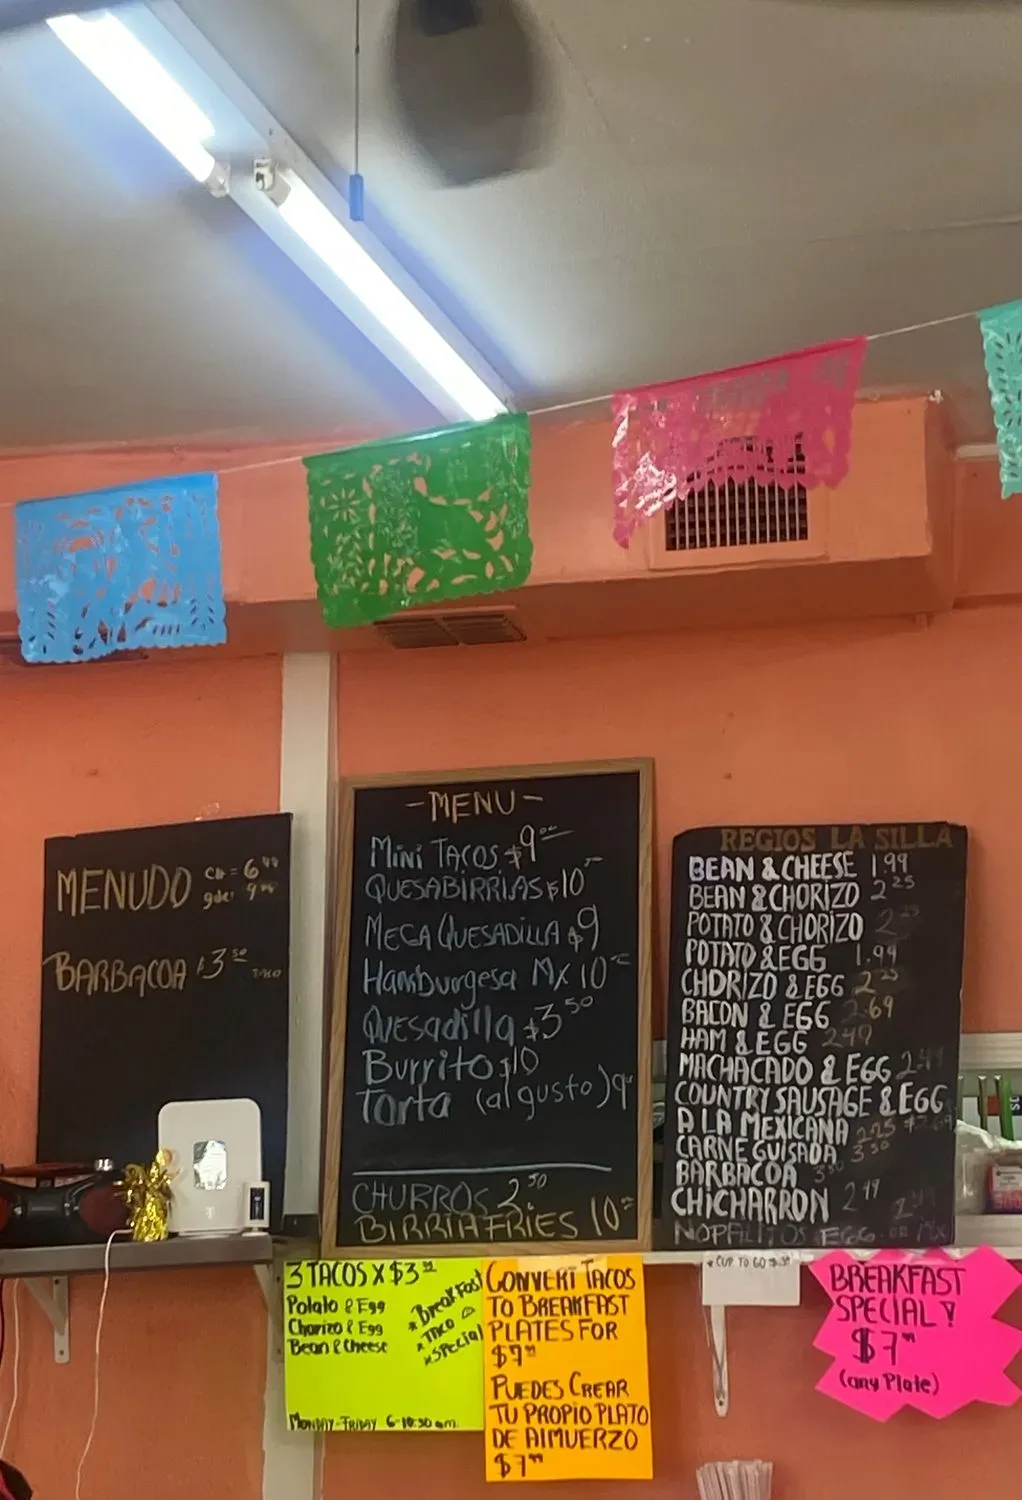 MENUDO CH = 6.99
gde: 9.99
BARBACOA $3.50 TACO
- MENU -
Mini TACOS $9.00
QUESABIRRIAS $10
MEGA QUESADILLA $9
Hamburgesa Mx 10
Quesadilla $3.50
Burrito $10
Torta (al gusto) 9
CHURROS 2.50
BIRRIA FRIES 10
REGIOS LA SILLA
BEAN & CHEESE 1.99
BEAN & CHORIZO 2.25
POTATO & CHORIZO 2.25
POTATO & EGG 1.99
CHORIZO & EGG 2.25
BACON & EGG 2.69
HAM & EGG 2.49
MACHACADO & EGG 2.49
COUNTRY SAUSAGE & EGG
A LA MEXICANA 2.25
CARNE GUISADA 3.50
BARBACOA 3.50
CHICHARRON 2.49
NOPALITOS EGG
3 TACOS X $3.99
Potato & Egg
Chorizo & Egg
Bean & Cheese
* Breakfast
* TACO
* SPECIAL
MONDAY-FRIDAY 6-10:30 am.
CONVERT TACOS
TO BREAKFAST
PLATES FOR
$7.99
PUEDES CREAR
TU PROPIO PLATO
DE AlMUERZO
$7.99
* CUP TO GO
BREAKFAST
SPECIAL!
$7.99
(any Plate)